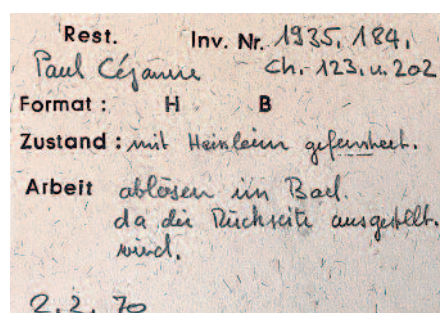 Rest. Inv. Nr. 1935, 184,
Paul Cézanne Ch. 123. u. 202
Format : H B
Zustand : mit Heinleim gefenstert.
Arbeit ablösen im Bad.
da die Rückseite ausgestellt.
wird.
2.2.70